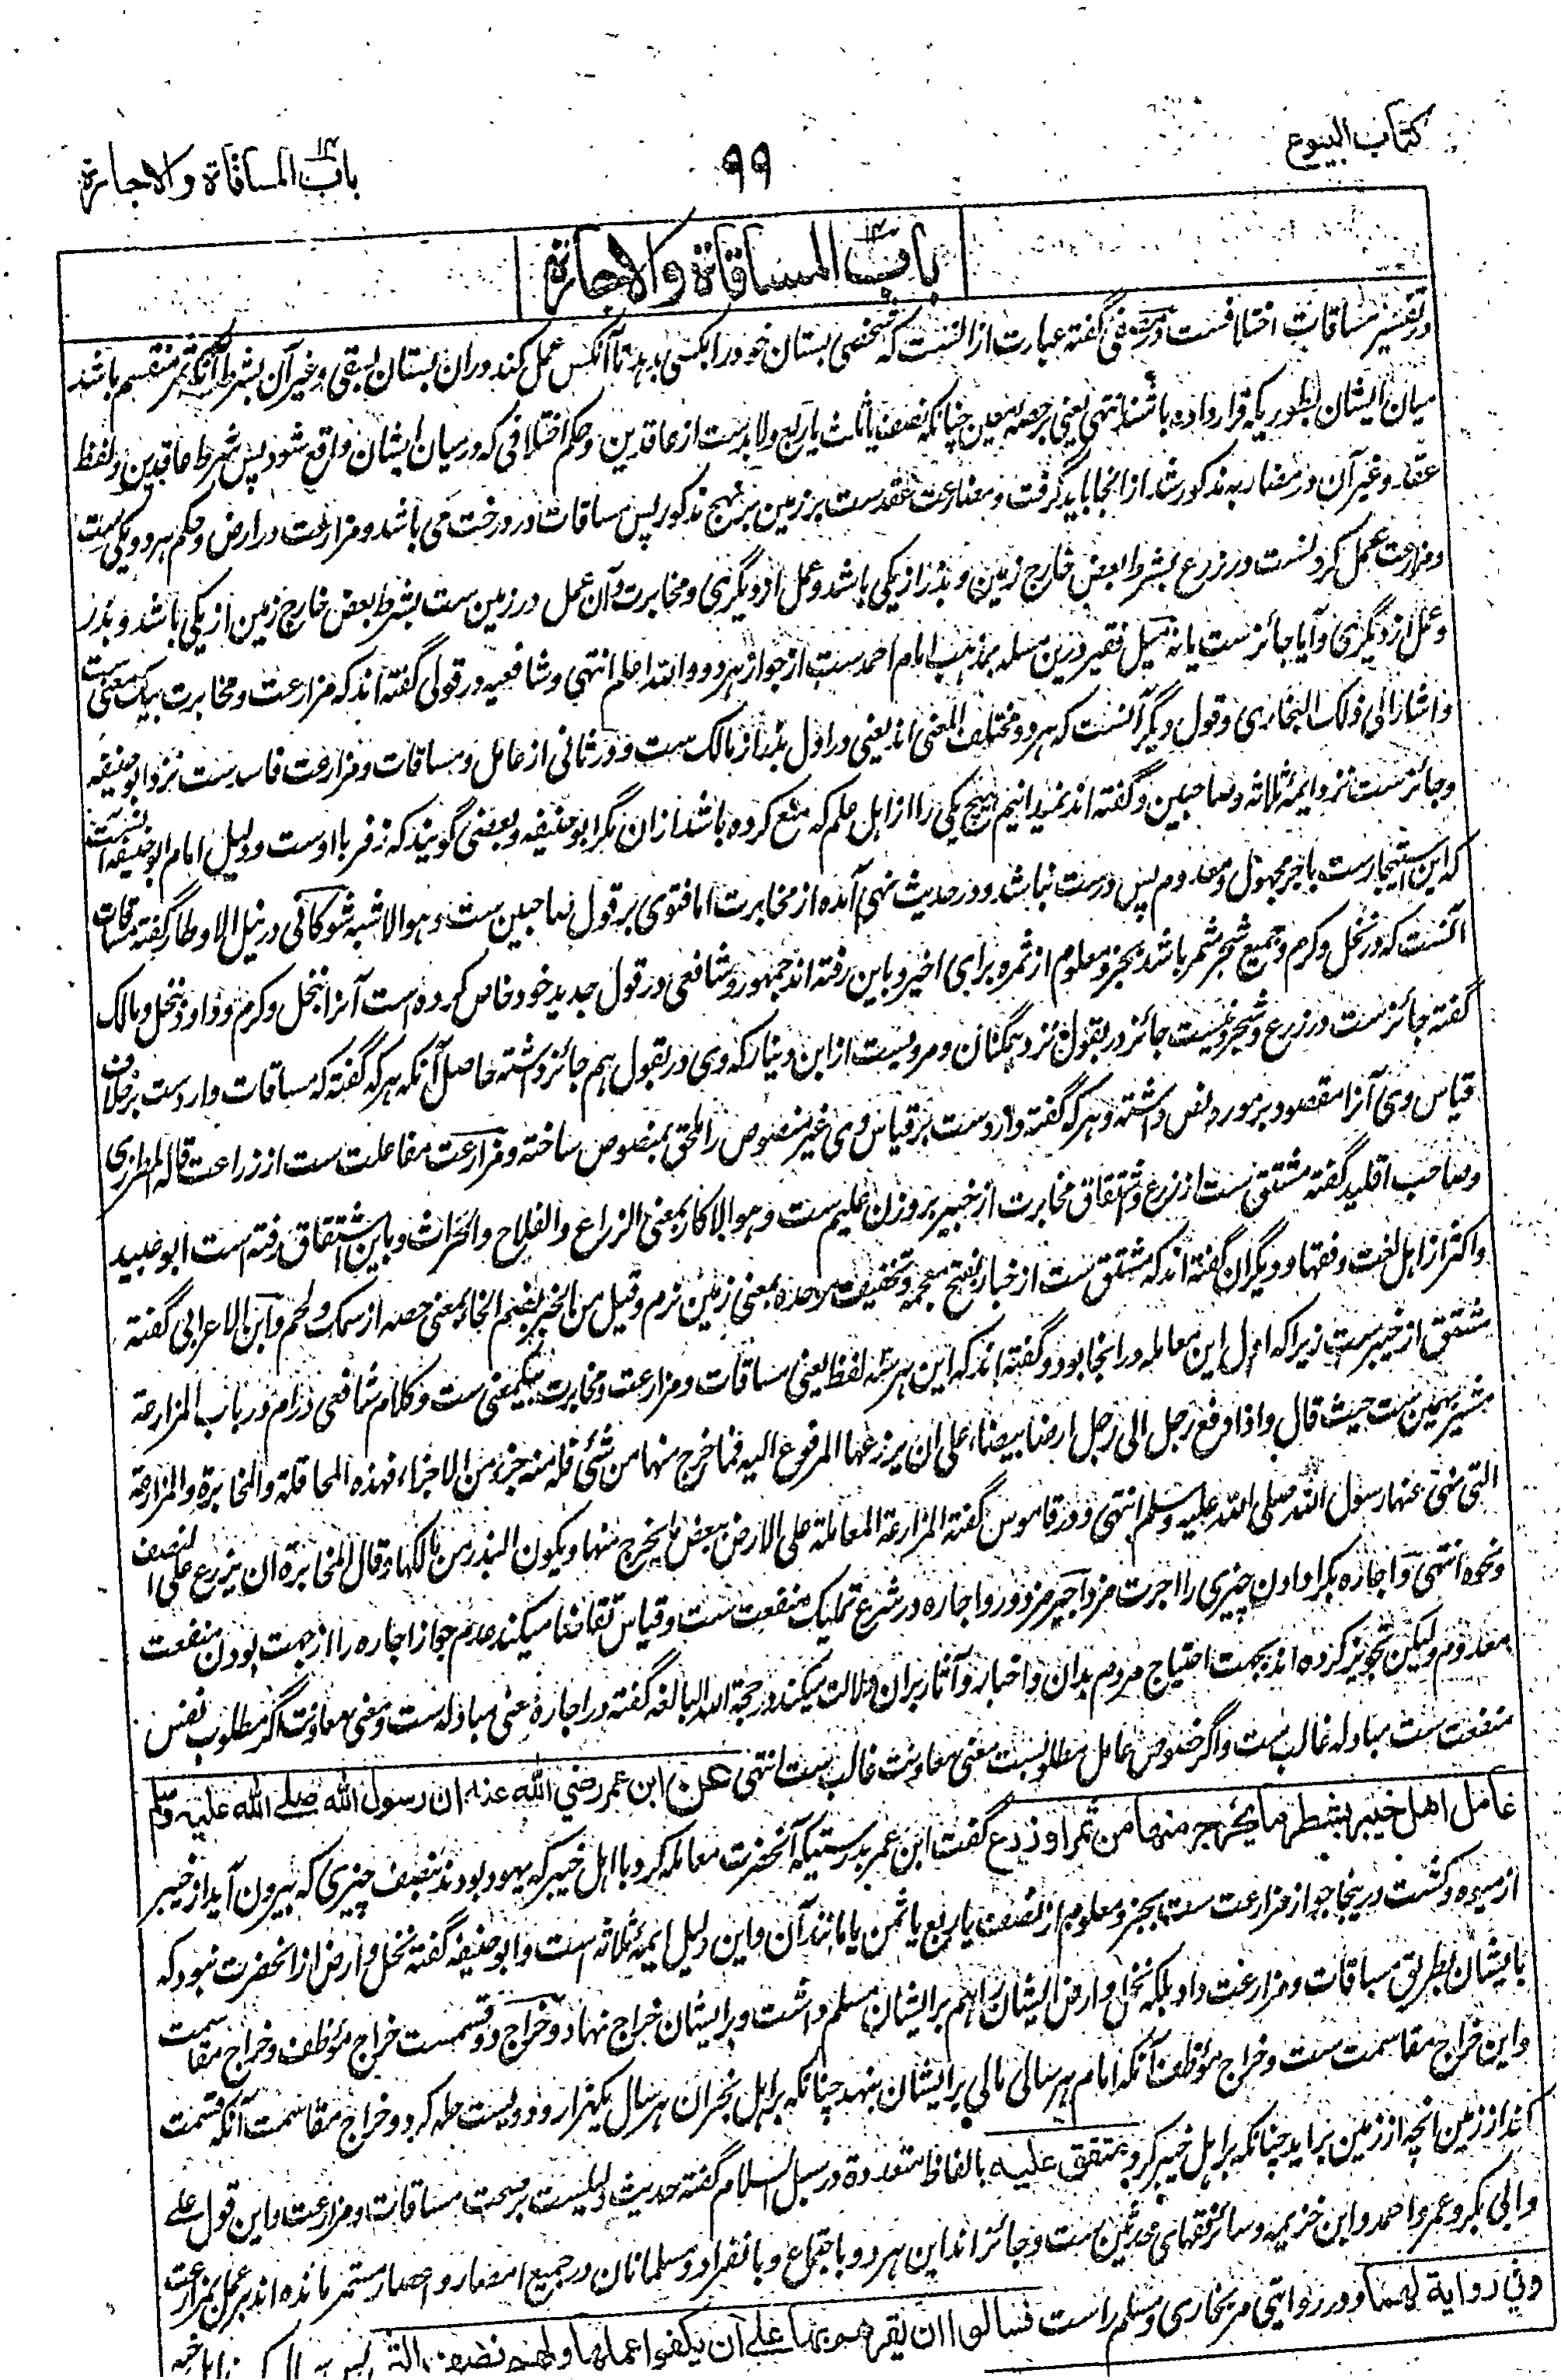 کتاب البیوع
۹۹
باب المساقاة والاجارة
باب المساقاة والاجارة
در تفسیر مساقات اختلافست و در مصفی گفته عبارت از انست که شخصی بستان خود را بکسی بدهد تا آنکس عمل کند در ان بستان بسقی و غیر آن بشرط آنکه ثمر منقسم باشد
میان ایشان بطوریکه قرار داده باشند انتهی یعنی بر حصه معین چنانکه نصف یا ثلث یا ربع و لا بدست از عاقدین و حکم اختلافی که در میان ایشان واقع شود پس شرط عاقدین و لفظ
عقد و غیر آن در مضاربه مذکور شد از انجا باید گرفت و مزارعت عقدست بر زمین بر نهج مذکور پس مساقات در درخت می باشد و مزارعت در ارض و حکم هر دو یکی ست
و مزارعت عمل کردنست در زرع بشرط بعض خارج زمین و بذر از یکی باشد و عمل از دیگری و مخابرت و آن عمل در زمین ست بشرط بعض خارج زمین از یکی باشد و بذر
و عمل از دیگری و آیا جائزست یا نه میل فقیر درین مسله بمذهب امام احمد ست از جواز هر دو و الله اعلم انتهی و شافعیه در قولی گفته اند که مزارعت و مخابرت بیک معنی ست
و اشار الی ذلک البخاری و قول دیگر آنست که هر دو مختلف المعنی اند یعنی در اول بذر از مالک ست و در ثانی از عامل و مساقات و مزارعت فاسدست نزد ابو حنیفه
و جائزست نزد ایمه ثلاثه و صاحبین و گفته اند نمیدانیم هیچ یکی را از اهل علم که منع کرده باشد ازان مگر ابو حنیفه و بعضی گویند که زفر با اوست و دلیل امام ابو حنیفه آنست
که این استیجارست باجر مجهول و معدوم پس درست نباشد و در حدیث نهی آمده از مخابرت اما فتوی بر قول صاحبین ست و هو الاشبه شوکانی در نیل الاوطار گفته مساقات
آنست که در نخل و کرم و جمیع شجر مثمر باشد بجزو معلوم از ثمره برای اجیر و باین رفته اند جمهور و شافعی در قول جدید خود خاص کرده است آنرا بنخل و کرم و داود بنخل و مالک
گفته جائزست در زرع و شجر و نیست جائز در بقول نزد همگنان و مرویست از ابن دینار که وی در بقول هم جائز داشته حاصل آنکه هر که گفته که مساقات واردست بر خلاف
قیاس وی آنرا مقصود بر مورد نص داشته و هر که گفته واردست بر قیاس وی غیر منصوص را ملحق بمنصوص ساخته و مزارعت مفاعلت ست از زراعت قاله المطرزی
و صاحب اقلید گفته مشتق ست از زرع و اشتقاق مخابرت از خبیر بر وزن علیم ست و هو الاکار بمعنی الزراع و الفلاح و الحراث و باین اشتقاق رفته است ابو عبید
و اکثر از اهل لغت و فقها و دیگران گفته اند که مشتق ست از خبار بفتح معجمه و تخفیف موحده بمعنی زمین نرم و قیل من الخبر بضم الخاء بمعنی حصه از سمک و لحم و ابن الاعرابی گفته
مشتق از خیبرست زیرا که اول این معامله در انجا بود و گفته اند که این هر سه لفظ یعنی مساقات و مزارعت و مخابرت بیک معنی ست و کلام شافعی در ام در باب المزارعة
مشیر بهمین ست حیث قال و اذا دفع رجل الی رجل ارضا بیضاء علی ان یزرعها المدفوع الیه فما خرج منها من شئی فله منه جزء من الاجزاء فهذه المحاقلة و المخابرة و المزارعة
التی نهی عنها رسول الله صلی الله علیه وسلم انتهی و در قاموس گفته المزارعة المعاملة علی الارض ببعض ما یخرج منها و یکون البذر من مالکها و قال المخابرة ان یزرع علی النصف
و نحوه انتهی و اجاره بکرا دادن چیزی را اجرت مزد اجیر مزدور و اجاره در شرع تملیک منفعت ست و قیاس تقاضا میکند عدم جواز اجاره را از جهت بودن منفعت
معدوم و لیکن تجویز کرده اند بجهت احتیاج مردم بدان و اخبار و آثار بران دلالت میکند در حجة الله البالغه گفته در اجاره معنی مبادله ست و معنی معاونت اگر مطلوب نفس
منفعت ست مبادله غالب ست و اگر خصوص عامل مطلوبست معنی معاونت غالب ست انتهی عن ابن عمر رضی الله عنه ان رسول الله صلی الله علیه وسلم
عامل اهل خیبر بشطر ما یخرج منها من ثمر او زرع گفت ابن عمر بدرستیکه آنحضرت معامله کرد با اهل خیبر که یهود بودند بنصف چیزی که بیرون آید از خیبر
از میوه و کشت درینجا جواز مزارعت ست بجزو معلوم از نصف یا ربع یا ثمن یا مانند آن و این دلیل ایمه ثلاثه است و ابو حنیفه گفته نخل و ارض از انحضرت نبود که
بایشان بطریق مساقات و مزارعت داد بلکه نخل و ارض ایشان را هم بر ایشان مسلم داشت و بر ایشان خراج نهاد و خراج دو قسمست خراج مؤظف و خراج مقاسمت
و این خراج مقاسمت ست و خراج مؤظف آنکه امام هر سالی مالی بر ایشان بنهد چنانکه بر اهل نجران هر سال یکهزار و دویست حله کرد و خراج مقاسمت آنکه قسمت
کند از زمین انچه از زمین براید چنانکه بر اهل خیبر کرد متفق علیه بالفاظ متعددة در سبل السلام گفته حدیث دلیلست بر صحت مساقات و مزارعت و این قول علی
و ابی بکر و عمر و احمد و ابن خزیمه و سائر فقهای محدثین ست و جائز اند این هر دو باجتماع و بانفراد و مسلمانان در جمیع امصار و اعصار مستمر مانده اند بر عمل بمزارعت
وفی روایة لهما و در روایتی مر بخاری و مسلم راست فسالوا ان یقرهم بها علی ان یکفوا عملها ولهم نصف